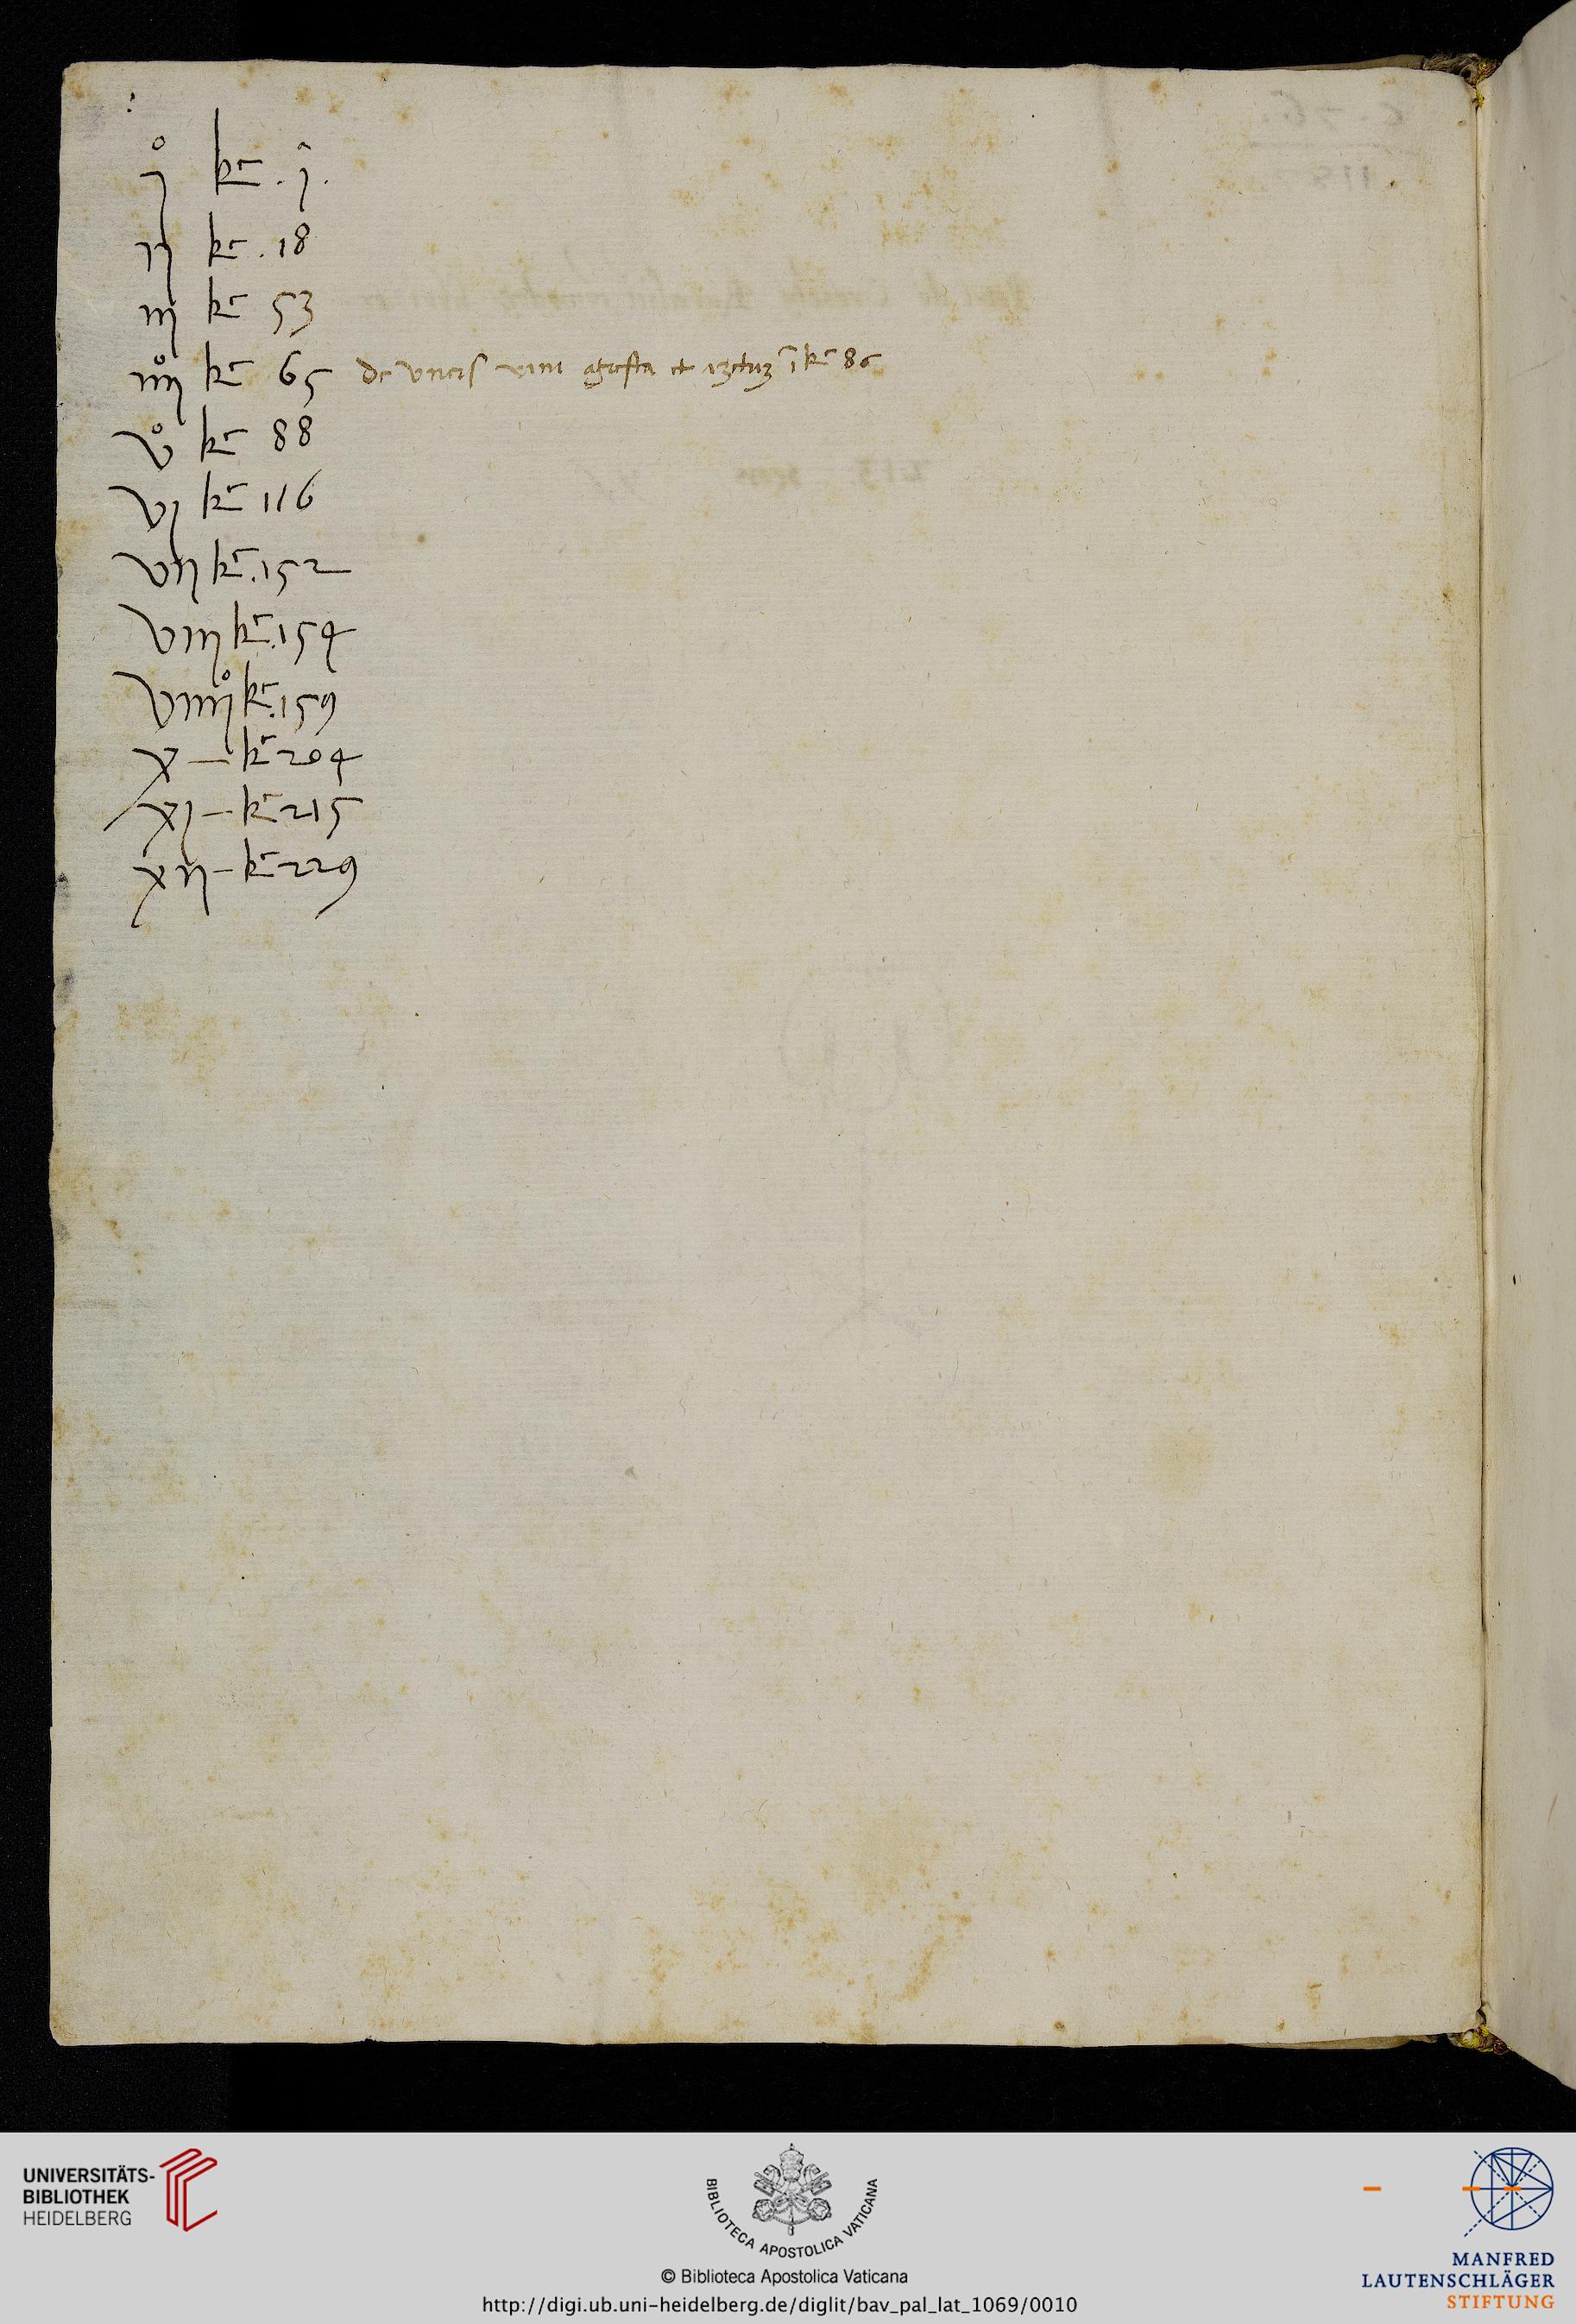 j° k̄. j.
ij k̄. 18
iij k̄ 53
iiij° k̄ 65 de vncis et k̄ 86
v° k̄ 88
vj k̄ 116
vij k̄. 152
viij k̄. 154
viiij° k̄. 159
x — k̄ 204
xj — k̄ 215
xij — k̄ 229
UNIVERSITÄTS-
BIBLIOTHEK
HEIDELBERG
BIBLIOTECA APOSTOLICA VATICANA
© Biblioteca Apostolica Vaticana
http://digi.ub.uni-heidelberg.de/diglit/bav_pal_lat_1069/0010
MANFRED
LAUTENSCHLÄGER
STIFTUNG